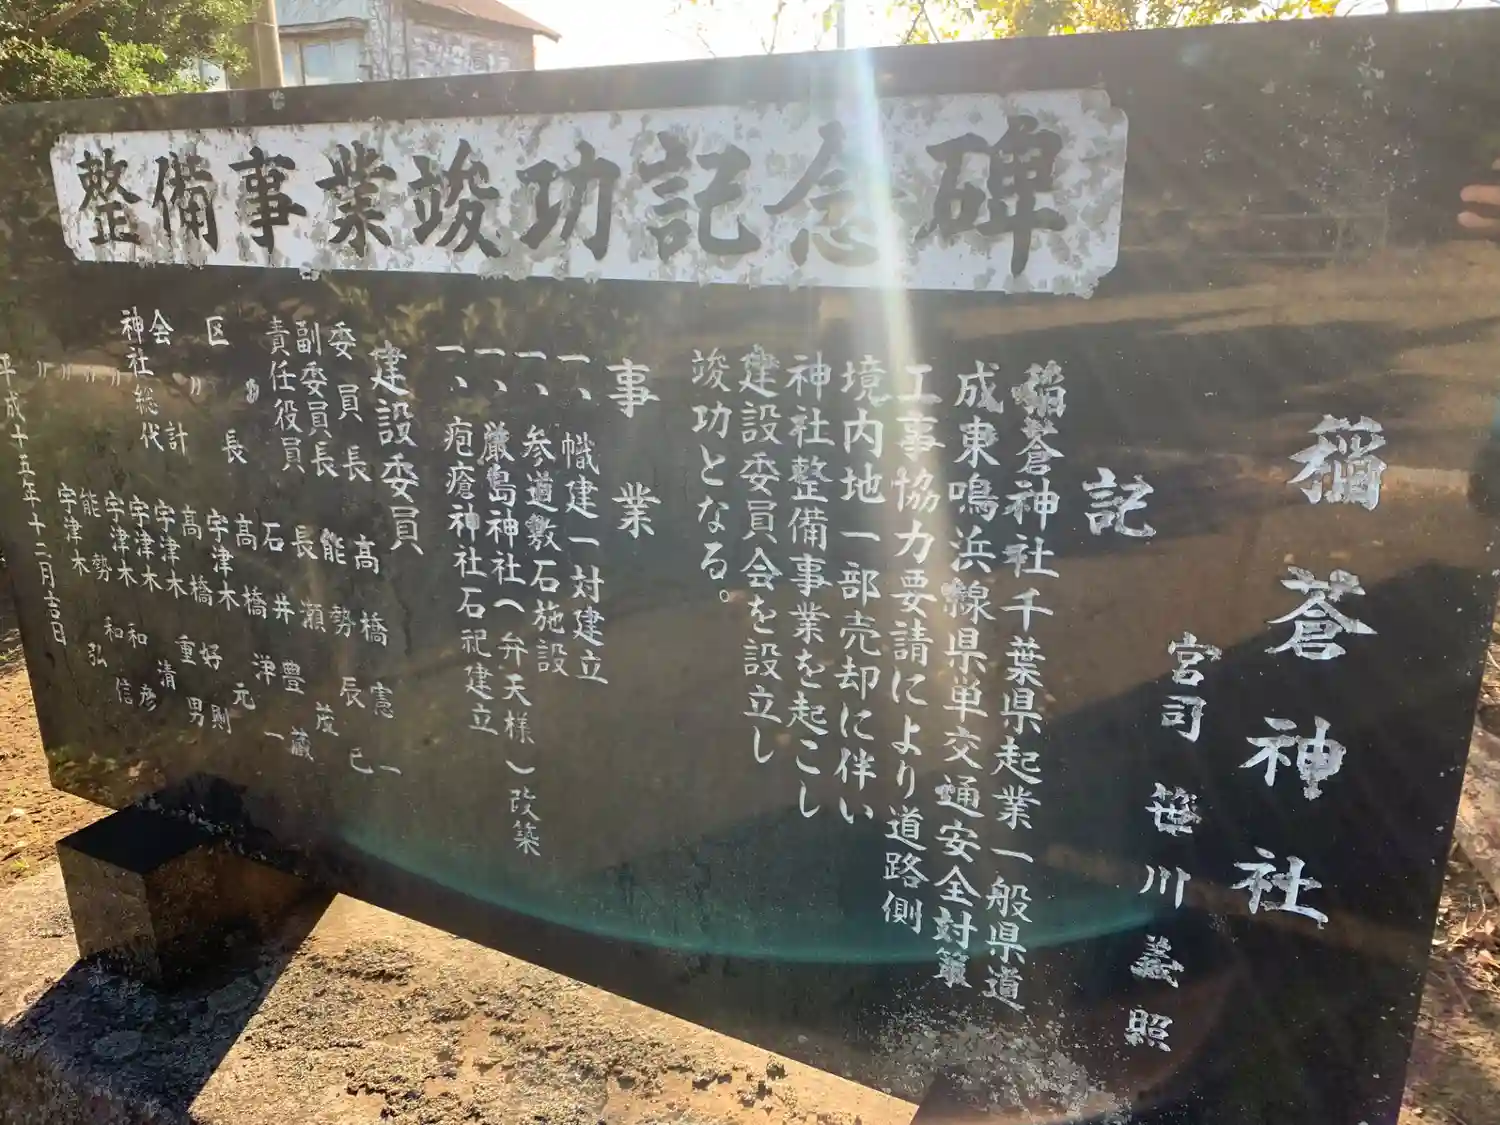 整備事業竣功記念碑
稲蒼神社
宮司 笹川義照
記
稲蒼神社千葉県起業一般県道
成東鳴浜線県単交通安全対策
工事協力要請により道路側
境内地一部売却に伴い
神社整備事業を起こし
建設委員会を設立し
竣功となる。
事業
一、幟建一対建立
一、参道敷石施設
一、厳島神社へ(弁天様)改築
一、疱瘡神社石祀建立
建設委員
委員長 高橋憲一
副委員長 能勢辰巳
責任役員 長瀬豊茂
〃 石井津蔵
区長 高橋元一
〃 宇津木好則
会計 高橋重男
神社総代 宇津木清
〃 宇津木和彦
〃 宇津木和信
〃 能勢弘
〃 宇津木
平成十五年十二月吉日